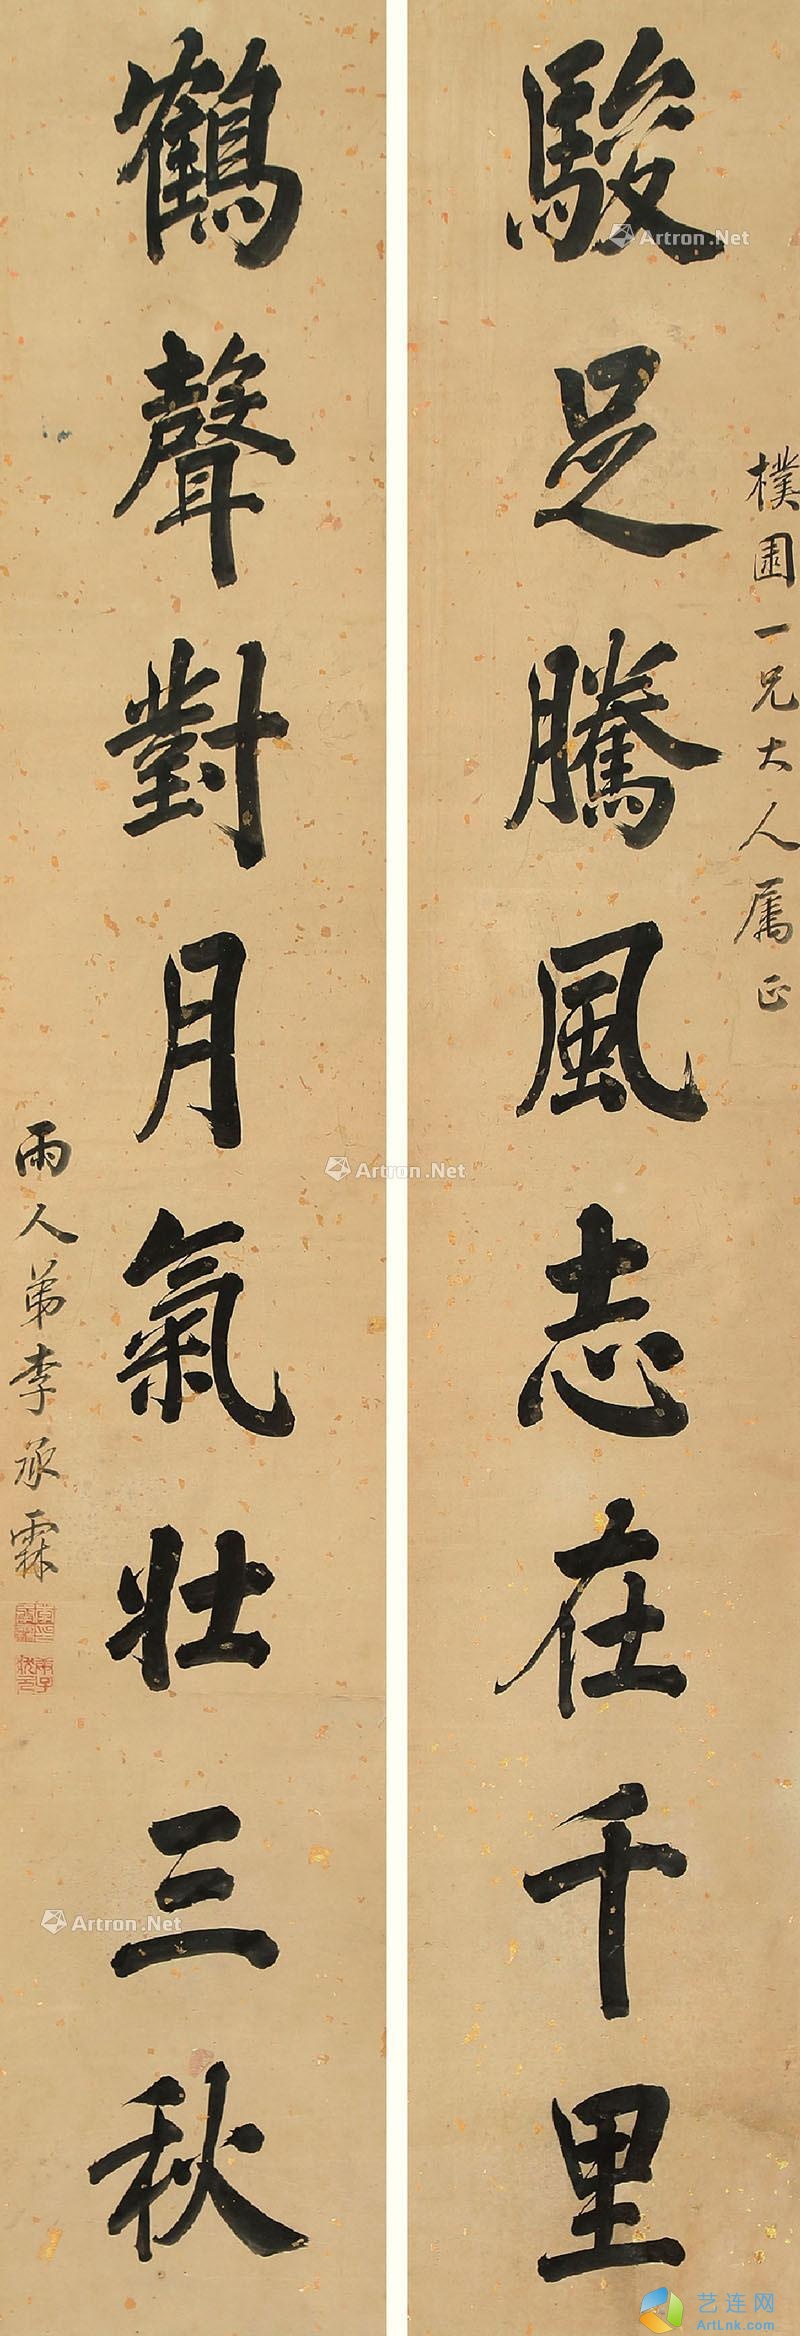 駿足騰風志在千里
樸園一兄大人屬正
鶴聲對月氣壯三秋
雨人弟李承霖
Artron.Net
Artron.Net
Artron.Net
艺连网
ArtLnk.com